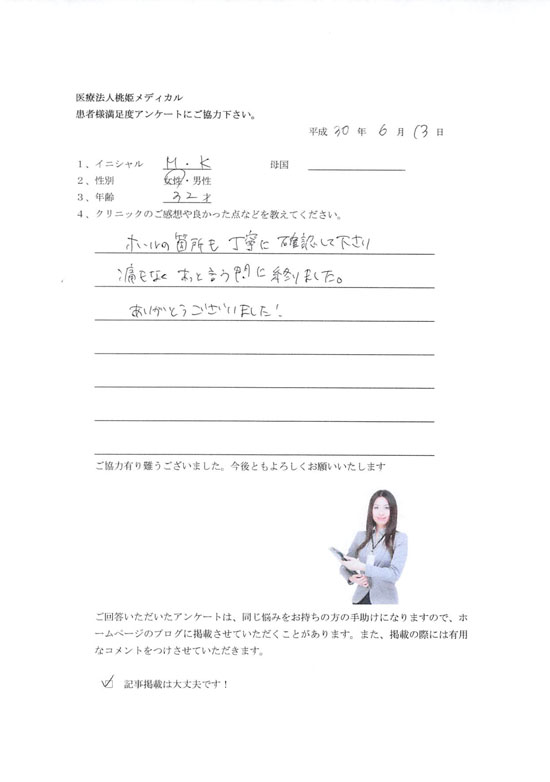 医療法人桃姫メディカル
患者様満足度アンケートにご協力下さい。
平成 30 年 6 月 13 日
1、イニシャル M・K 母国
2、性別 女性・男性
3、年齢 32才
4、クリニックのご感想や良かった点などを教えてください。
ホールの箇所も丁寧に確認して下さり
痛もなくあっと言う間に終りました。
ありがとうございました!
ご協力有り難うございました。今後ともよろしくお願いいたします
ご回答いただいたアンケートは、同じ悩みをお持ちの方の手助けになりますので、ホ
ームページのブログに掲載させていただくことがあります。また、掲載の際には有用
なコメントをつけさせていただきます。
記事掲載は大丈夫です!